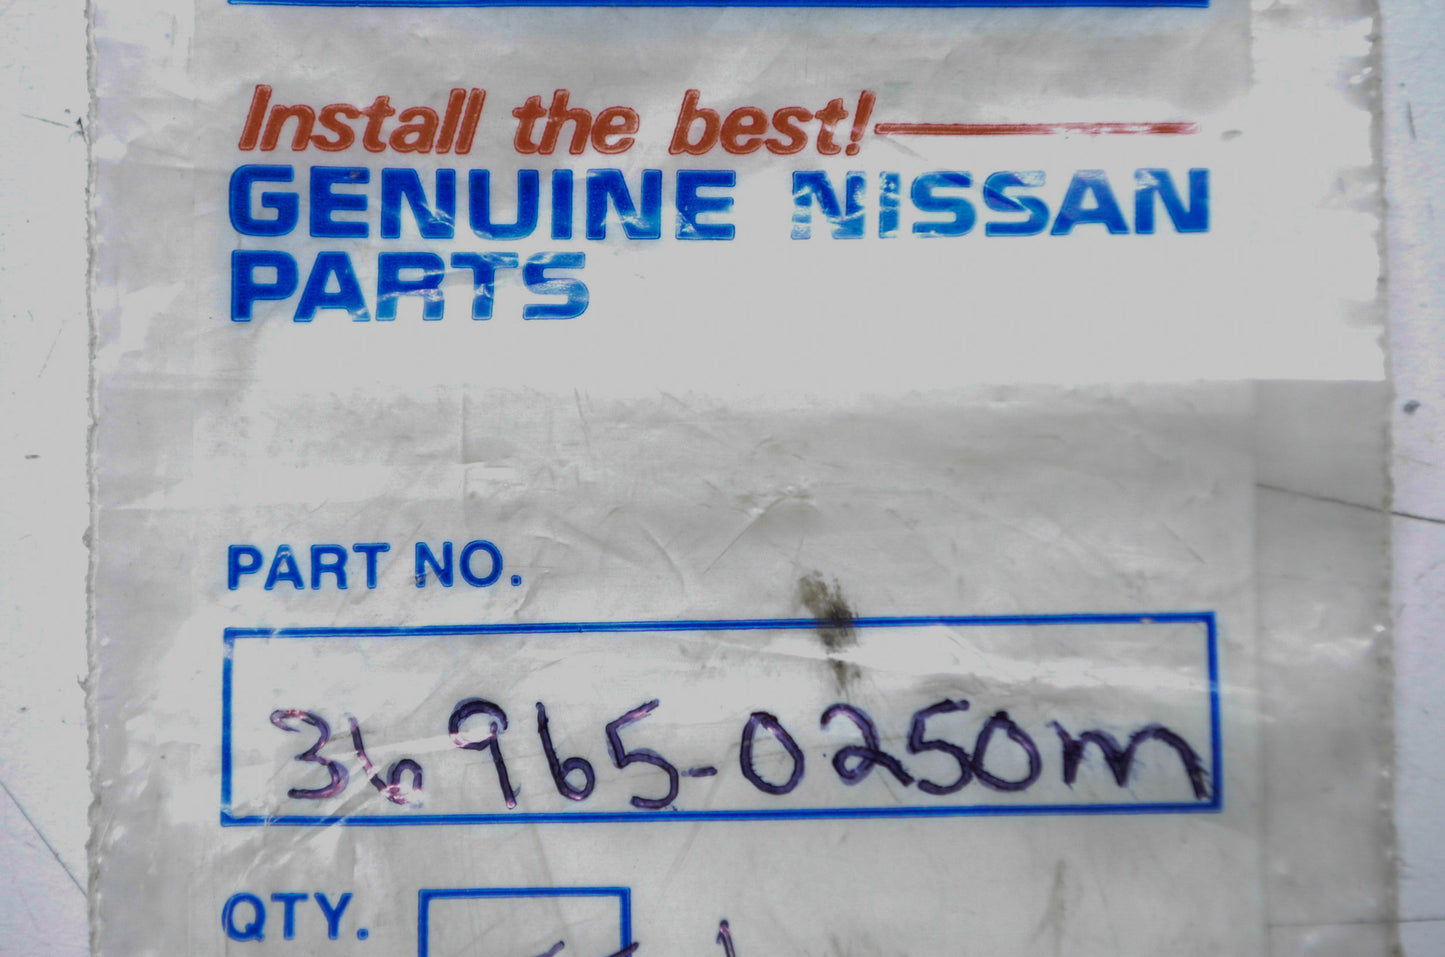 Install the best!
GENUINE NISSAN
PARTS
PART NO.
36965-0250m
QTY.